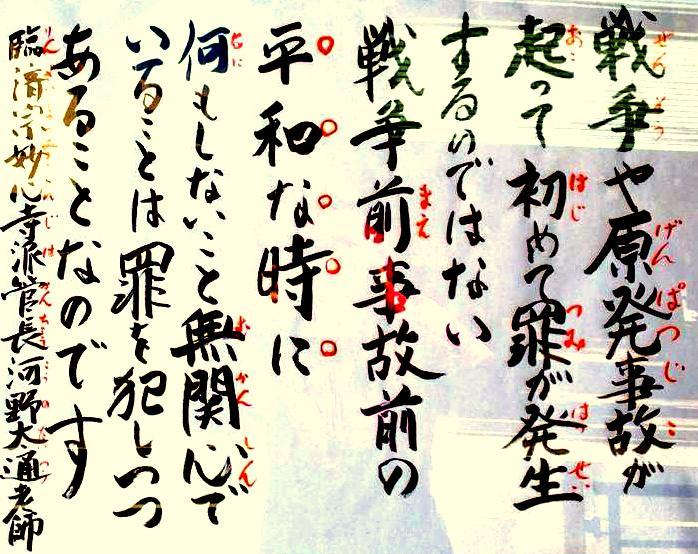 戦争や原発事故が
起って初めて罪が発生
するのではない
戦争前事故前の
平和な時に
何もしないこと無関心で
いることは罪を犯しつつ
あることなのです
臨済宗妙心寺派管長河野太通老師